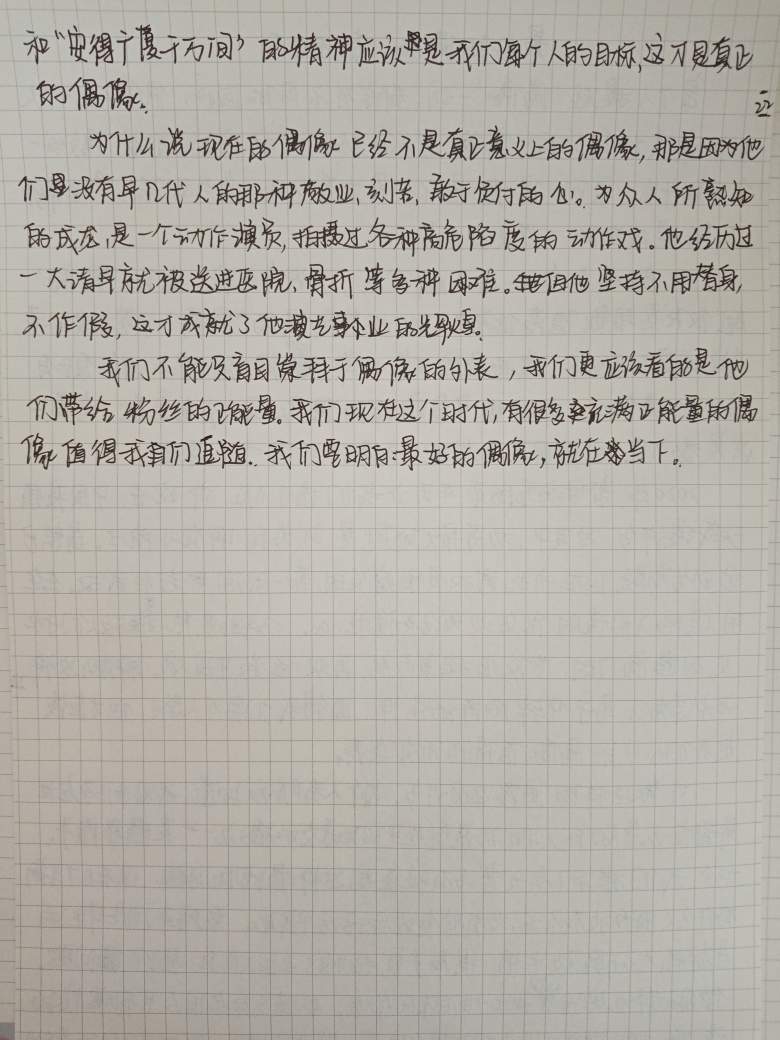 和“安得广厦千万间”的精神应该是我们每个人的目标,这才是真正
的偶像.
22
为什么说现在的偶像已经不是真正意义上的偶像,那是因为他
们没有早几代人的那种敬业,刻苦,敢于付的心。为众人所熟知
的成龙,是一个动作演员,拍摄过各种高危险度的动作戏。他经历过
一大清早就被送进医院,骨折等多种困难。但他坚持不用替身,
不作假,这才成就了他演艺事业的辉煌.
我们不能只盲目于偶像的外表,我们更应该看的是他
们带给粉丝的正能量.我们现在这个时代,有很多充满正能量的偶
像值得我们追随.我们要明白:最好的偶像,就在当下。